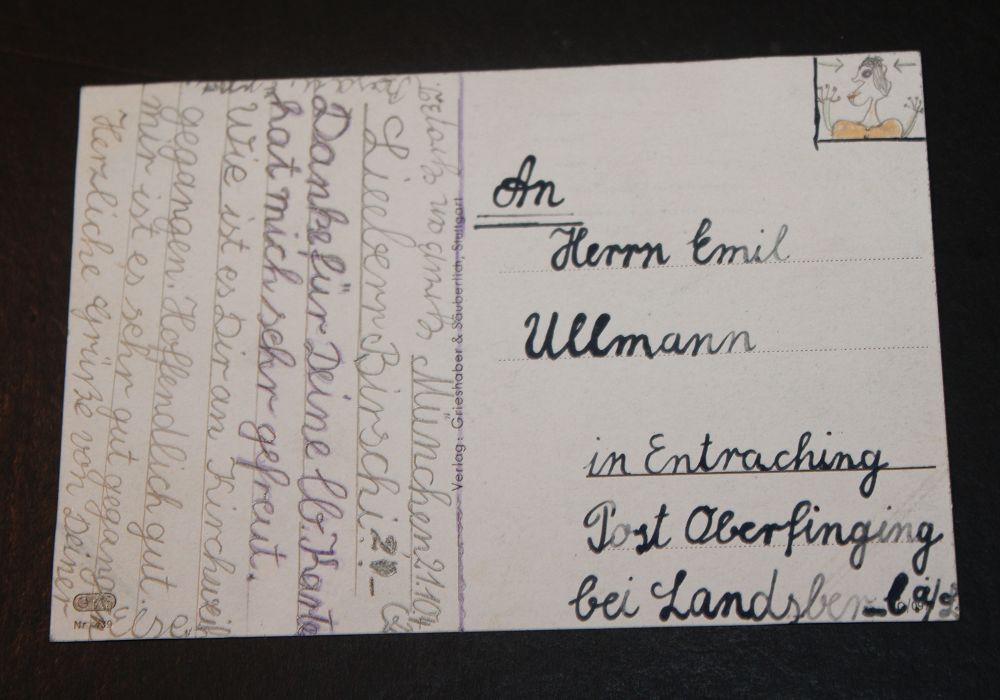 München 21.10.
Lieber Birschi!
Danke für Deine lb. Karte
hat mich sehr gefreut.
Wie ist es Dir an Kirchweih
gegangen. Hoffendlich gut.
mir ist es sehr gut gegangen
Herzliche Grüße von Deiner
Verlag: Grieshaber & Sauberlich, Stuttgart
An
Herrn Emil
Ullmann
in Entraching
Post Oberfinging
bei Landsber
Nr. 439